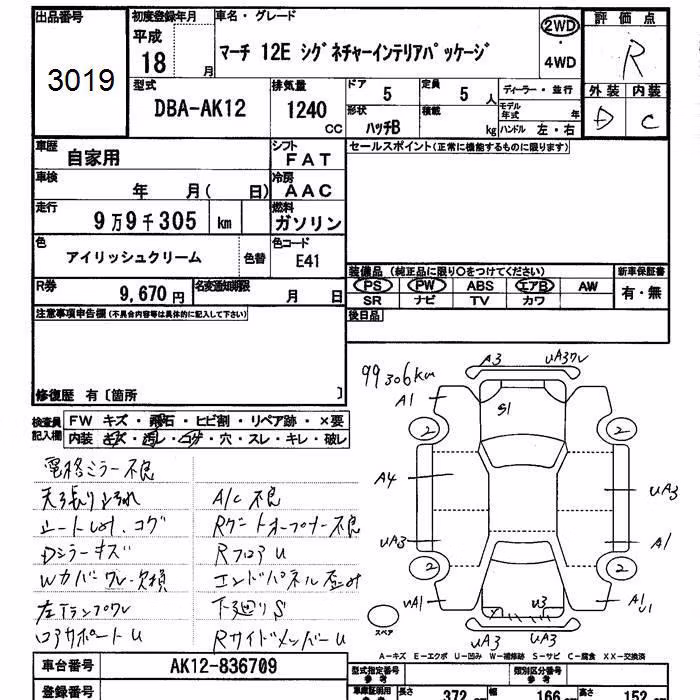 出品番号
3019
初度登録年月
平成
18 月
車名・グレード
マーチ 12E シグネチャーインテリアパッケージ
2WD
・
4WD
評価点
R
外装 内装
D C
型式
DBA-AK12
排気量
1240
CC
ドア
5
定員
5 人
形状
ハッチB
積載
kg
ディーラー・並行
モデル年式 年
ハンドル 左・右
車歴
自家用
シフト
FAT
車検
年 月( 日)
冷房
AAC
走行
9万9千305 km
燃料
ガソリン
色
アイリッシュクリーム
色替
色コード
E41
R券
9,670 円
名変通知期限
月 日
セールスポイント(正常に機能するものに限ります)
装備品 (純正品に限り○をつけてください)
PS PW ABS エアB AW
SR ナビ TV カワ
新車保証書
有・無
後日品
注意事項申告欄(不具合内容等は具体的に記入して下さい)
修復歴 有〔箇所 〕
検査員
記入欄
FW キズ・飛石・ヒビ割・リペア跡・×要
内装 キズ・汚レ・コゲ・穴・スレ・キレ・破レ
電格ミラー不良
天張りよごれ
シートしみ、コゲ
Dシラーキズ
Wカバーワレ・欠損
左Tランプワレ
コアサポートU
A/C不良
Rゲートオープナー不良
RフロアU
エンドパネル歪み
下廻りS
RサイドメンバーU
99306km
A3
UA3ワレ
A1
S1
2
2
A4
UA3
UA3
A1
2
2
UA1
U3
A1
U1
UA3
UA3
スペア
A-キズ E-エクボ U-凹み W-補修跡 S-サビ C-腐食 XX-交換済
車台番号
AK12-836709
登録番号
型式指定番号
参考
類別区分番号
参考
車証明用
参考
長さ 372
幅 166
高さ 152